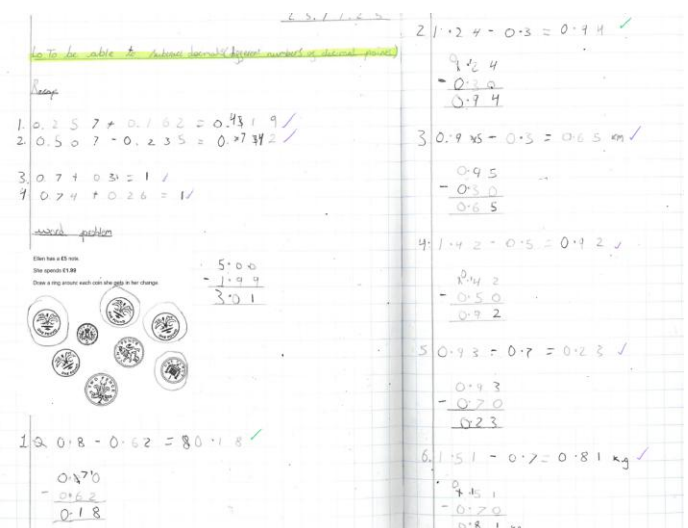 Lo To be able to subtract decimals (different numbers of decimal places)
Recap
1. 0.257 + 0.162 = 0.419
2. 0.507 - 0.235 = 0.272
3. 0.7 + 0.3 = 1
4. 0.74 + 0.26 = 1
word problem
Ellen has a £5 note.
She spends £1.99
Draw a ring around each coin she gets in her change.
5.00
- 1.99
3.01
ONE POUND
TWO PENCE
1 0.8 - 0.62 = 0.18
0.80
- 0.62
0.18
2 1.24 - 0.3 = 0.94
1.24
- 0.30
0.94
3 0.95 - 0.3 = 0.65 km
0.95
- 0.30
0.65
4. 1.42 - 0.5 = 0.92
1.42
- 0.50
0.92
5 0.93 - 0.7 = 0.23
0.93
- 0.70
0.23
6. 1.51 - 0.7 = 0.81 kg
1.51
- 0.70